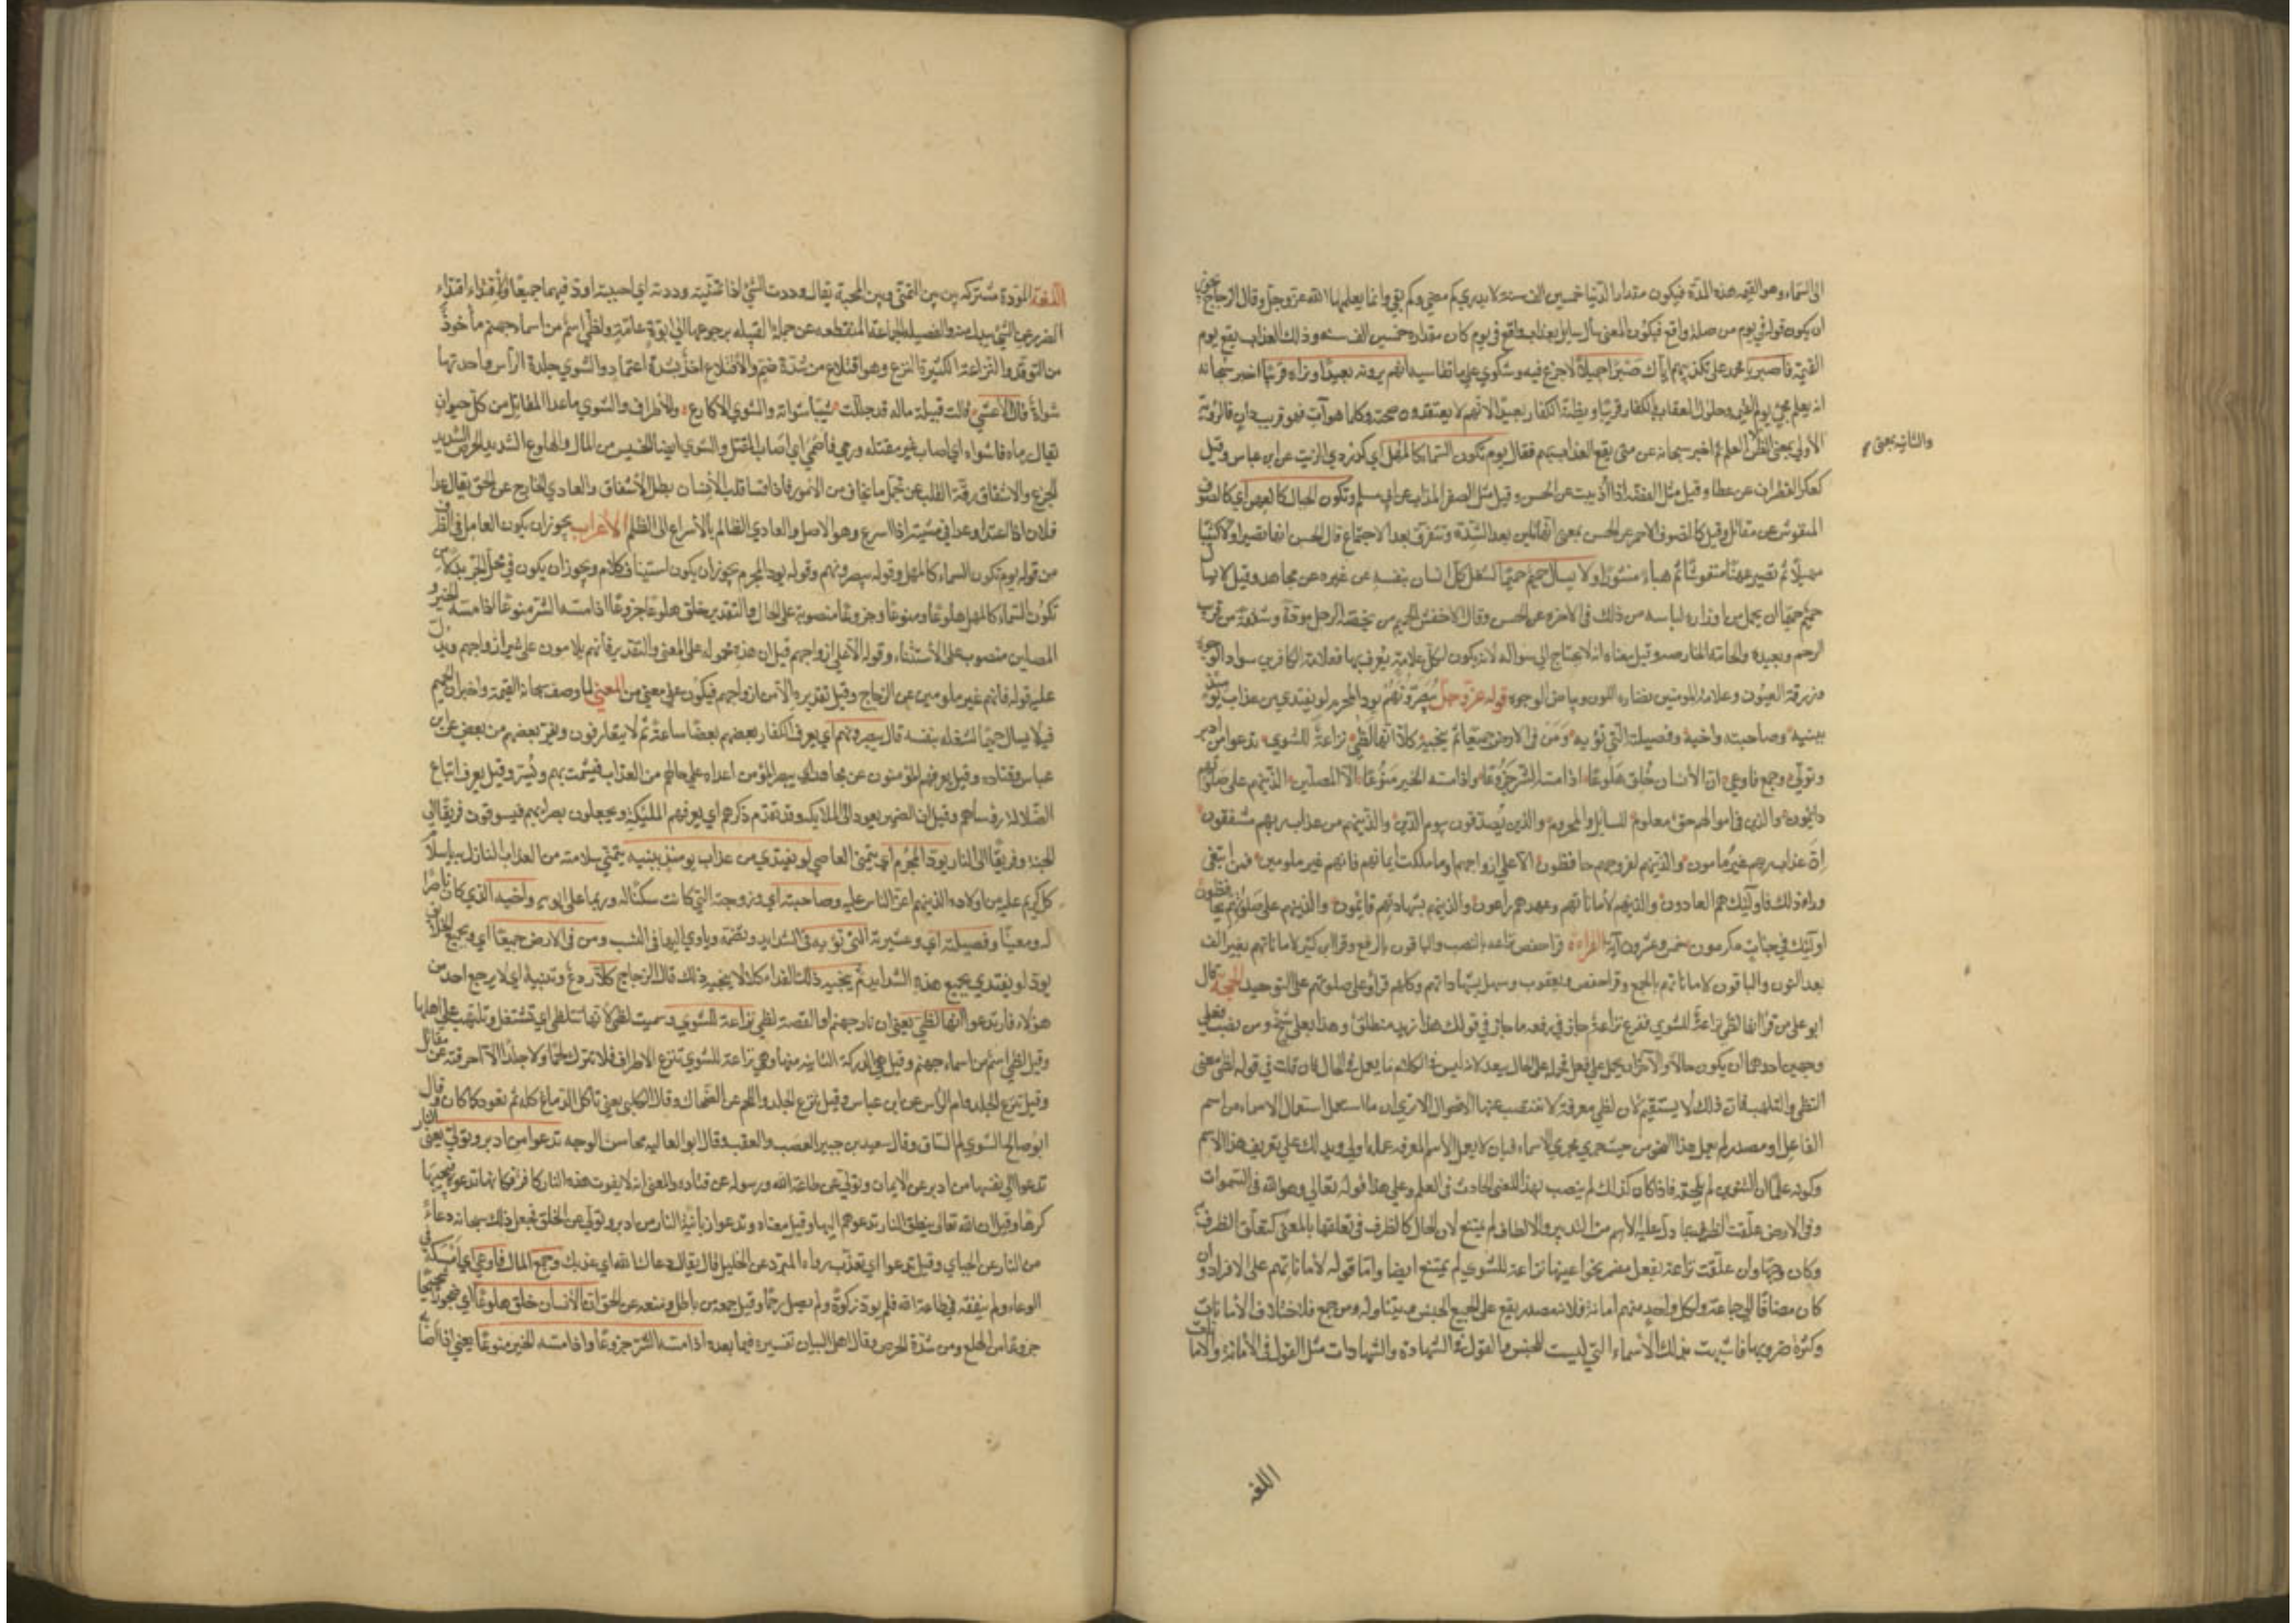 الى السماء وهو القيمه هذه المدة فيكون مقدار الدنيا خمسين الف سنة لا يدري كم مضي وكم بقي وانما يعلمها الله عز وجل وقال الزجاج يجوز
ان يكون قوله في يوم من صلة واقع فيكون المعنى سأل سايل بعذاب واقع في يوم كان مقداره خمسين الف سنه وذلك العذاب يقع يوم
القيمة فاصبر يا محمد على تكذيبهم اياك صبرا جميلا لا جزع فيه ولا شكوي على ما تقاسيه انهم يرونه بعيدا ونراه قريبا اخبر سبحانه
انه يعلم مجيء يوم القيمه وحلول العقاب بالكفار قريبا ويظنه الكفار بعيدا لانهم لا يعتقدون صحته وكلما هو آت فهو قريب دان فالرؤية
الاولي بمعنى الظن العلم ثم اخبر سبحانه عن متى يقع العذاب بهم فقال يوم تكون السماء كالمهل اي كدردي الزيت عن ابن عباس وقيل
والثانيه بمعنى
كعكر القطران عن عطا وقيل مثل الفضة اذا اذيبت عن الحسن وقيل مثل الصفر المذاب عن ابي مسلم وتكون الجبال كالعهن اي كالصوف
المنفوش عن مقاتل وقيل كالصوف الاحمر عن الحسن بمعنى انها تلين بعد الشدة وتتفرق بعد الاجتماع قال الحسن انها تصير اولا كثيبا
مهيلا ثم تصير عهنا منفوشا ثم هباء منثورا ولا يسأل حميم حميما لشغل كل انسان بنفسه عن غيره عن مجاهد وقيل لا يسأل
حميم حميما ان يحمل من اوزاره لياسه من ذلك في الاخرة عن الحسن وقال الاخفش الحميم من يخصه الرجل مودة وشفقة من قريب
الرحم وبعيده والحامة الخاصه وقيل معناه انه لا يحتاج الى سواله لانه يكون لكل علامة يعرف بها فعلامة الكافرين سواد الوجوه
وزرقة العيون وعلامة المومنين نضارة اللون وبياض الوجوه قوله عز وجل يبصرونهم يود المجرم لو يفتدي من عذاب يومئذ
ببنيه وصاحبته واخيه وفصيلته التي تؤيه ومن في الارض جميعا ثم ينجيه كلا انها لظى نزاعة للشوى تدعوا من ادبر
وتولى وجمع فاوعى ان الانسان خلق هلوعا اذا مسه الشر جزوعا واذا مسه الخير منوعا الا المصلين الذينهم على صلوتهم
دايمون والذين في اموالهم حق معلوم للسايل والمحروم والذين يصدقون بيوم الدين والذينهم من عذاب ربهم مشفقون
ان عذاب ربهم غير مامون والذينهم لفروجهم حافظون الا على ازواجهم او ما ملكت ايمانهم فانهم غير ملومين فمن ابتغى
وراء ذلك فاولئك هم العادون والذينهم لاماناتهم وعهدهم راعون والذينهم بشهادتهم قائمون والذينهم على صلوتهم يحافظون
اولئك في جنات مكرمون خمس وعشرون آية القراءة قرا حفص نزاعه بالنصب والباقون بالرفع وقرا ابن كثير لاماناتهم بغير الف
بعد النون والباقون لاماناتهم بالجمع وقرا حفص ويعقوب وسهل بشهاداتهم وكلهم قرأوا على صلوتهم على التوحيد الحجة قال
ابو على من قرأ انها لظى نزاعة للشوي فرفع نزاعة جاز في رفعه ما جاز في قولك هذا زيد منطلق وهذا بعلي شيخ ومن نصب فعلى
وجهين احدهما ان يكون حالا والآخر ان يحمل على فعل فحمله على الحال يبعد لانه ليس في الكلام ما يعمل في الحال فان قلت في قوله لظى معنى
التلظى والتلهب فان ذلك لا يستقيم لان لظى معرفة لا تنتصب عنها الاحوال الا ترى ان ما استعمل استعمال الاسماء من اسم
الفاعل او مصدر لم يعمل هذا النحو من حيث جرى مجرى الاسماء فبان لا يعمل الاسم المعرفه عمله اولى ويدلك على تعريف هذا الاسم
وكونه علما ان التنوين لم يلحقه فاذا كان كذلك لم ينصب بهذا المعنى الحادث في العلم وعلى هذا قوله تعالى وهو الله في السموات
وفي الارض علقت الظرف بما دل عليه الاسم من التدبير والالطاف لم يمتنع لان الحال كالظرف في تعلقها بالمعنى كتعلق الظرف به
وكان وجها وان علقت نزاعة بفعل مضمر نحو اعينها نزاعة للشوي لم يمتنع ايضا واما قوله لاماناتهم على الافراد وان
كان مضافا الى جماعة ولكل واحد منهم امانة فلانه مصدر يقع على جميع الجنس ويتناوله ومن جمع فلاختلاف الامانات
وكثرة ضروبها فاشبهت بذلك الاسماء التي ليست للجنس والقول في الشهادة والشهادات مثل القول في الامانة والامانات
اللغه
اللغة المودة مشتركه بين التمنى وبين المحبة يقال وددت الشيء اذا تمنيته وددته اي احببته اود فيهما جميعا والافتداء افتداء
الضرر عن الشيء ببدل منه والفصيلة الجماعة المنقطعه عن جملة القبيله برجوعها الى ابوة خاصة ولظى اسم من اسماء جهنم مأخوذ
من التوقد والنزاعة الكثيرة النزع وهو اقتلاع من شدة ضم والاقتلاع اخذ بشدة اعتماد والشوي جلدة الرأس واحدتها
شواة قال الاعشي قالت قتيلة ماله قد جللت شيبا شواته والشوي الاكارع والاطراف والشوي ما عدا المقاتل من كل حيوان
يقال رماه فاشواه اي اصاب غير مقتله ورمى فاصمى اي اصاب المقتل والشوي ايضا الخسيس من المال والهلوع الشديد الحرص الشديد
الجزع والاشفاق رقة القلب عن تحمل ما يخاف من الامور فاذا قسا قلب الانسان بطل الاشفاق والعادي الخارج عن الحق يقال عدا
فلان اذا اعتدا وعدا في مشيته اذا اسرع وهو الاصل والعادي الظالم بالاسراع الى الظلم الاعراب يجوز ان يكون العامل في الظرف
من قوله يوم تكون السماء كالمهل وقوله يبصرونهم وقوله يود المجرم يجوز ان يكون استيناف كلام ويجوز ان يكون في محل الجر بدلا من
تكون السماء كالمهل هلوعا ومنوعا وجزوعا منصوبة على الحال والتقدير خلق هلوعا جزوعا اذا مسه الشر منوعا اذا مسه الخير و
المصلين منصوب على الاستثناء وقوله الا على ازواجهم قيل ان هذه محمولة على المعنى والتقدير فانهم يلامون على غير ازواجهم ويدل
عليه قوله فانهم غير ملومين عن الزجاج وقيل تقديره الا من ازواجهم فيكون على بمعنى من المعنى لما وصف سبحانه القيمة واخبر ان الحميم
فيه لا يسال حميما لشغله بنفسه قال يبصرونهم اي يعرف الكفار بعضهم بعضا ساعة ثم لا يتعارفون ويفر بعضهم من بعض عن ابن
عباس وقتاده وقيل يعرفهم المؤمنون عن مجاهد اي يبصر المؤمن اعداه على حالهم من العذاب فيشمت بهم ويسر وقيل يعرف اتباع
الضلالة رؤساهم وقيل ان الضمير يعود الى الملايكه وقد تقدم ذكرهم اي يعرفهم المليكة ويجعلون بصراء بهم فيسوقون فريقا الى
الجنة وفريقا الى النار يود المجرم اي يتمنى العاصي لو يفتدي من عذاب يومئذ ببنيه يتمنى سلامته من العذاب النازل به باسلام
كل كريم عليه من اولاده الذينهم اعز الناس عليه وصاحبته اي وزوجته التي كانت سكنا له وربما اعلى ابويه واخيه الذي كان ناصرا
له ومعينا وفصيلته اي وعشيرته التي تؤيه في الشدايد وتضمه وياوي اليها في النسب ومن في الارض جميعا اي وبجميع الخلايق
يود لو يفتدي بجميع هذه الشدايد ثم ينجيه ذلك الفداء كلا لا ينجيه ذلك قال الزجاج كلا ردع وتنبيه اي لا يرجع احد من
هؤلاء فارتدعوا انها لظى يعنى ان نار جهنم او القصة لظى نزاعة للشوي وسميت لظى لانها تتلظى اي تشتعل وتلتهب على اهلها
وقيل لظى اسم من اسماء جهنم وقيل هي الدركة الثانيه منها وهي نزاعة للشوي تنزع الاطراف فلا تترك لحما ولا جلدا الا احرقته عن مقاتل
وقيل تنزع الجلد وام الرأس عن ابن عباس وقيل تنزع الجلد واللحم عن الضحاك وقال الكلبي يعنى تاكل الدماغ كله ثم يعود كما كان وقال
ابو صالح الشوي لحم الساق وقال سعيد بن جبير العصب والعقب وقال ابو العاليه محاسن الوجه تدعوا من ادبر وتولى يعنى النار
تدعوا الى نفسها من ادبر عن الايمان وتولى عن طاعة الله ورسوله عن قتاده والمعنى انه لا يفوت هذه النار كافر فكانها تدعوه فيجيبها
كرها وقيل ان الله تعالى ينطق النار تدعوهم اليها وقيل معناه وتدعوا زبانية النار من ادبر وتولى عن الخلق فجعل ذلك سبحانه دعاء
من النار عن الجبائي وقيل تدعوا اي تعذب رواه المبرد عن الخليل قال يقال دعاك الله اي عذبك وجمع المال فاوعى اي امسكه في
الوعاء ولم ينفقه في طاعة الله فلم يود زكوة ولم يصل رحما وقيل جمعه من باطل ومنعه عن الحق ان الانسان خلق هلوعا اي ضجورا شحيحا
جزوعا من الهلع ومن شدة الحرص وقال اهل البيان تفسيره فيما بعده اذا مسه الشر جزوعا واذا مسه الخير منوعا يعنى اذا اصابه